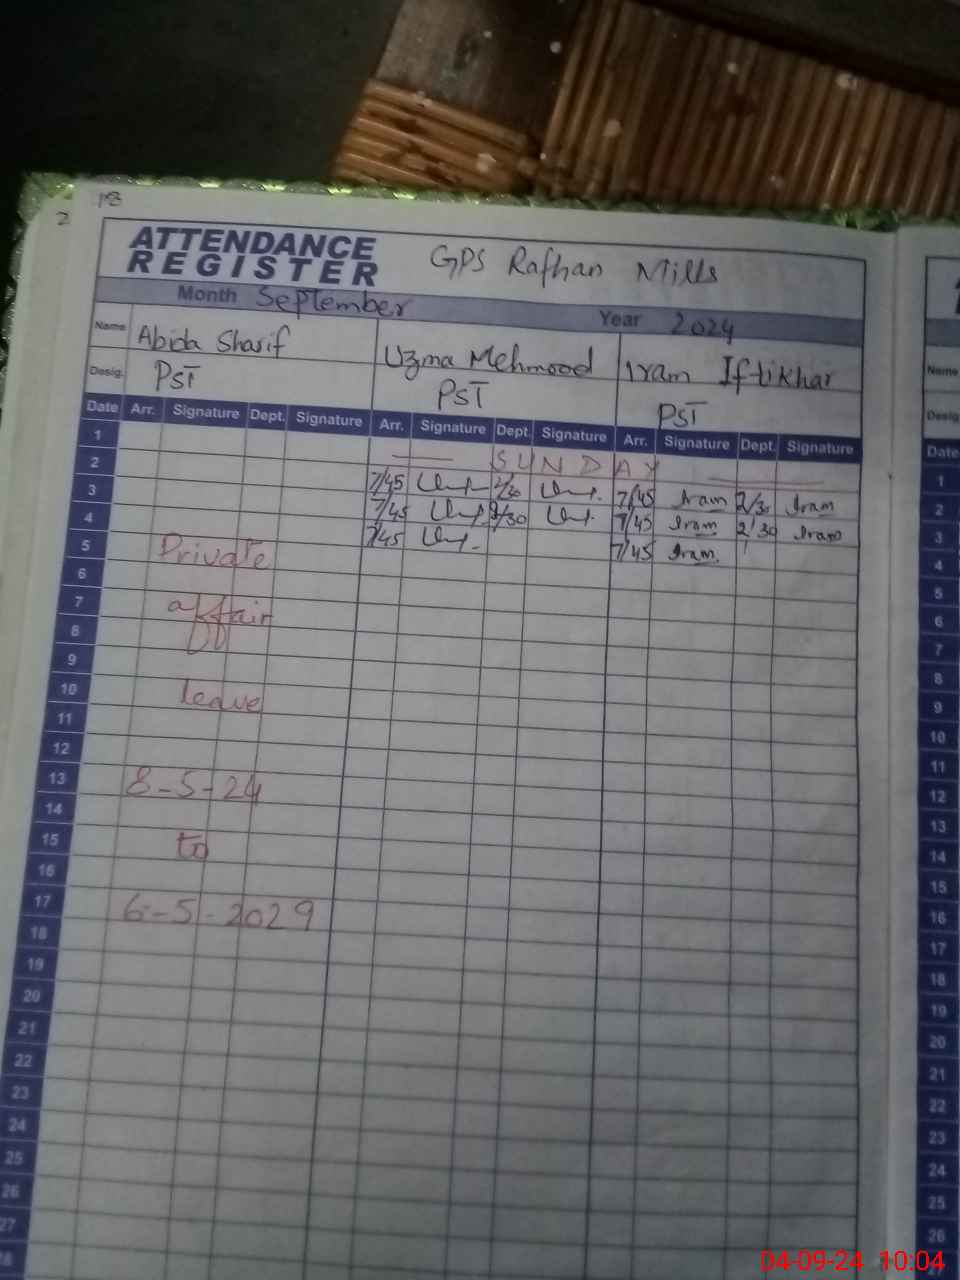 18
2
ATTENDANCE
REGISTER
GPS Rafhan Mills
Month September Year 2024
Name Abida Sharif Uzma Mehmood Iram Iftikhar Name
Desig. PST PST PST Desig
Date Arr. Signature Dept. Signature Arr. Signature Dept. Signature Arr. Signature Dept. Signature Date
1 SUNDAY 1
2 7/45 2/30 7/45 Iram 2/30 Iram 2
3 7/45 2/30 7/45 Iram 2/30 Iram 3
4 7/45 7/45 Iram. 4
5 Private 5
6 6
7 affair 7
8 8
9 9
10 leave 10
11 11
12 12
13 8-5-24 13
14 14
15 to 15
16 16
17 6-5-2029 17
18 18
19 19
20 20
21 21
22 22
23 23
24 24
25 25
26 26
27
28
04-09-24 10:04